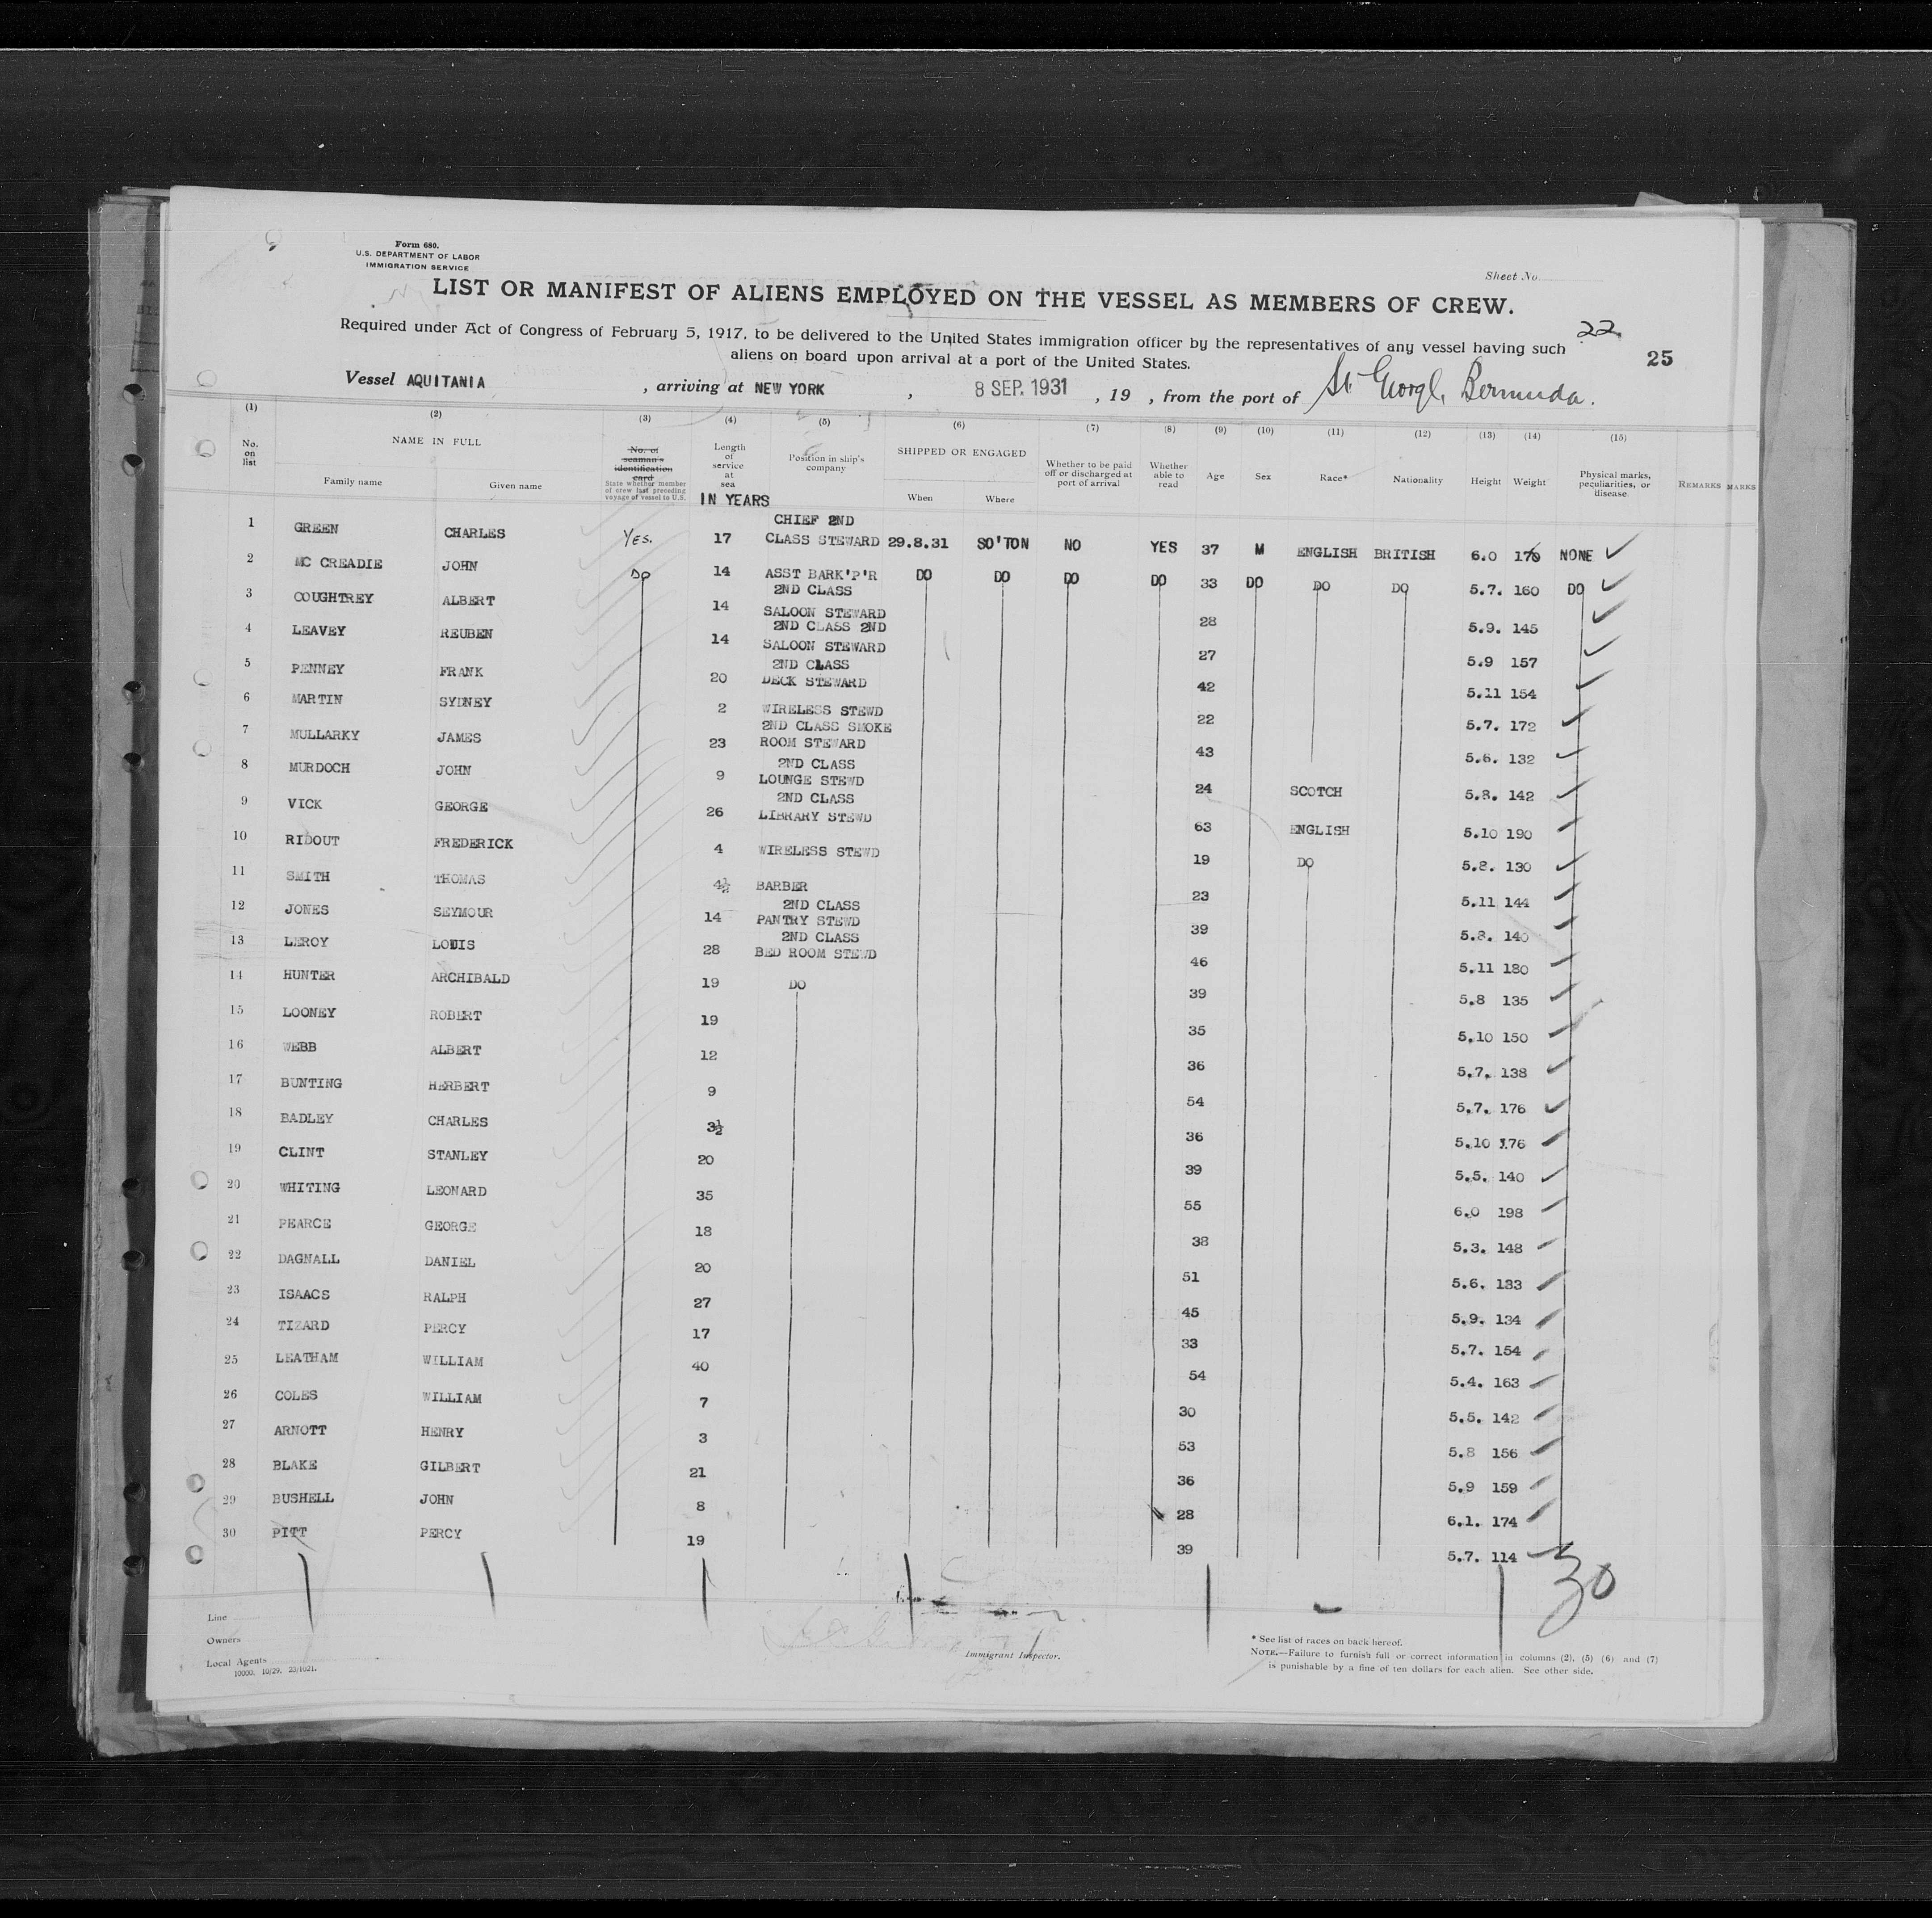 Form 680.
U.S. DEPARTMENT OF LABOR
IMMIGRATION SERVICE
Sheet No.
LIST OR MANIFEST OF ALIENS EMPLOYED ON THE VESSEL AS MEMBERS OF CREW.
Required under Act of Congress of February 5, 1917, to be delivered to the United States immigration officer by the representatives of any vessel having such
aliens on board upon arrival at a port of the United States.
22
25
Vessel AQUITANIA , arriving at NEW YORK , 8 SEP. 1931 , 19 , from the port of St. George, Bermuda.
(1) (2) (3) (4) (5) (6) (7) (8) (9) (10) (11) (12) (13) (14) (15)
No. on list
NAME IN FULL
Family name Given name
No. of seaman's identification card
State whether member of crew last preceding voyage of vessel to U.S.
Length of service at sea
IN YEARS
Position in ship's company
SHIPPED OR ENGAGED
When Where
Whether to be paid off or discharged at port of arrival
Whether able to read
Age Sex Race* Nationality Height Weight
Physical marks, peculiarities, or disease
REMARKS MARKS
1 GREEN CHARLES Yes. 17 CHIEF 2ND CLASS STEWARD 29.8.31 SO'TON NO YES 37 M ENGLISH BRITISH 6.0 170 NONE
2 MC CREADIE JOHN DO 14 ASST BARK'P'R DO DO DO DO 33 DO DO DO 5.7. 160 DO
3 COUGHTREY ALBERT 14 2ND CLASS SALOON STEWARD 28 5.9. 145
4 LEAVEY REUBEN 14 2ND CLASS 2ND SALOON STEWARD 27 5.9 157
5 PENNEY FRANK 20 2ND CLASS DECK STEWARD 42 5.11 154
6 MARTIN SYDNEY 2 WIRELESS STEWD 22 5.7. 172
7 MULLARKY JAMES 23 2ND CLASS SMOKE ROOM STEWARD 43 5.6. 132
8 MURDOCH JOHN 9 2ND CLASS LOUNGE STEWD 24 SCOTCH 5.8. 142
9 VICK GEORGE 26 2ND CLASS LIBRARY STEWD 63 ENGLISH 5.10 190
10 RIDOUT FREDERICK 4 WIRELESS STEWD 19 DO 5.8. 130
11 SMITH THOMAS 4½ BARBER 23 5.11 144
12 JONES SEYMOUR 14 2ND CLASS PANTRY STEWD 39 5.8. 140
13 LEROY LOUIS 28 2ND CLASS BED ROOM STEWD 46 5.11 180
14 HUNTER ARCHIBALD 19 DO 39 5.8 135
15 LOONEY ROBERT 19 35 5.10 150
16 WEBB ALBERT 12 36 5.7. 138
17 BUNTING HERBERT 9 54 5.7. 176
18 BADLEY CHARLES 3½ 36 5.10 176
19 CLINT STANLEY 20 39 5.5. 140
20 WHITING LEONARD 35 55 6.0 198
21 PEARCE GEORGE 18 38 5.3. 148
22 DAGNALL DANIEL 20 51 5.6. 133
23 ISAACS RALPH 27 45 5.9. 134
24 TIZARD PERCY 17 33 5.7. 154
25 LEATHAM WILLIAM 40 54 5.4. 163
26 COLES WILLIAM 7 30 5.5. 142
27 ARNOTT HENRY 3 53 5.8 156
28 BLAKE GILBERT 21 36 5.9 159
29 BUSHELL JOHN 8 28 6.1. 174
30 PITT PERCY 19 39 5.7. 114
30
Line
Owners
Local Agents
10000. 10/29. 23/1021.
Immigrant Inspector.
* See list of races on back hereof.
NOTE.—Failure to furnish full or correct information in columns (2), (5) (6) and (7)
is punishable by a fine of ten dollars for each alien. See other side.